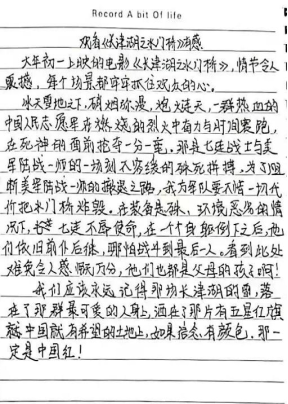 Record A bit Of life
观看《长津湖之水门桥》有感
大年初一上映的电影《长津湖之水门桥》,情节令人
震撼,每个场景都牢牢抓住观众的心。
冰天雪地之下,硝烟弥漫,炮火连天,一群热血的
中国人民志愿军在燃烧的烈火中奋力与时间赛跑,
在死神的面前抢夺一分一毫,那是七连战士与美
军陆战一师的一场刻不容缓的殊死拼搏。为了阻
断美军陆战一师的撤退之路,我方军队要不惜一切代
价把水门桥炸毁。在装备悬殊、环境恶劣的情
况下,七连不辱使命,在一个个身躯倒下之后,他
们依旧前仆后继,哪怕战斗到最后一人。看到此处
难免令人感慨万分,他们也都是父母的孩子啊!
我们应该永远记得那场长津湖的雪,落
在了那群最可爱的人身上,洒在了那片有五星红旗
就中国就有希望的土地上,如果信念有颜色,那一
定是中国红!